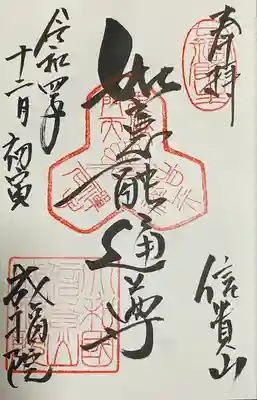 奉拝
信貴山
如意融通尊
令和四年
十二月初寅
成福院